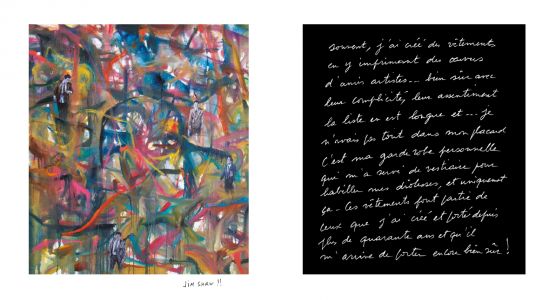 JIM SHAW !!
souvent, j'ai créé des vêtements
en y imprimant des œuvres
d'amis artistes... bien sûr avec
leur complicité, leur assentiment
la liste en est longue et... je
n'avais pas tout dans mon placard
c'est ma garde robe personnelle
qui m'a servi de vestiaire pour
habiller mes diotoses, et uniquement
ça... les vêtements font partie de
ceux que j'ai créé et porté depuis
plus de quarante ans et qu'il
m'arrive de porter encore bien sûr !